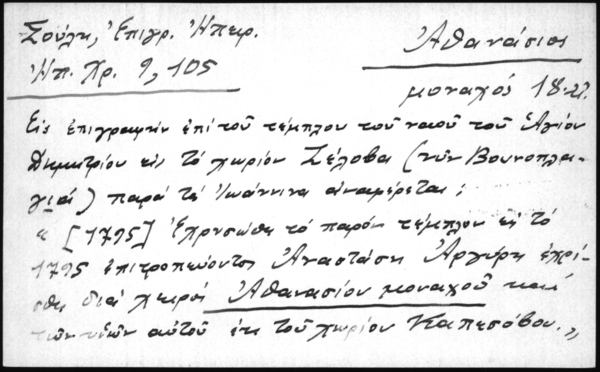 Σούλη, Ἐπιγρ. Ἠπειρ.
Ἠπ. Χρ. 9, 105
Ἀθανάσιος
μοναχός 18
Εἰς ἐπιγραφήν ἐπί τοῦ τέμπλου τοῦ ναοῦ τοῦ Ἁγίου
Δημητρίου εἰς τό χωρίον Σέλοβα (νῦν Βουνοπλα-
γιά) παρά τά Ἰωάννινα ἀναφέρεται:
« [1795] Ἐχρυσώθη τό παρόν τέμπλον εἰς τό
1795 ἐπιτροπεύοντος Ἀναστάση Ἀργύρη ἐχρί-
σθη διά χειρός Ἀθανασίου μοναχοῦ καί
τῶν υἱῶν αὐτοῦ ἐκ τοῦ χωρίου Καπεσόβου.»